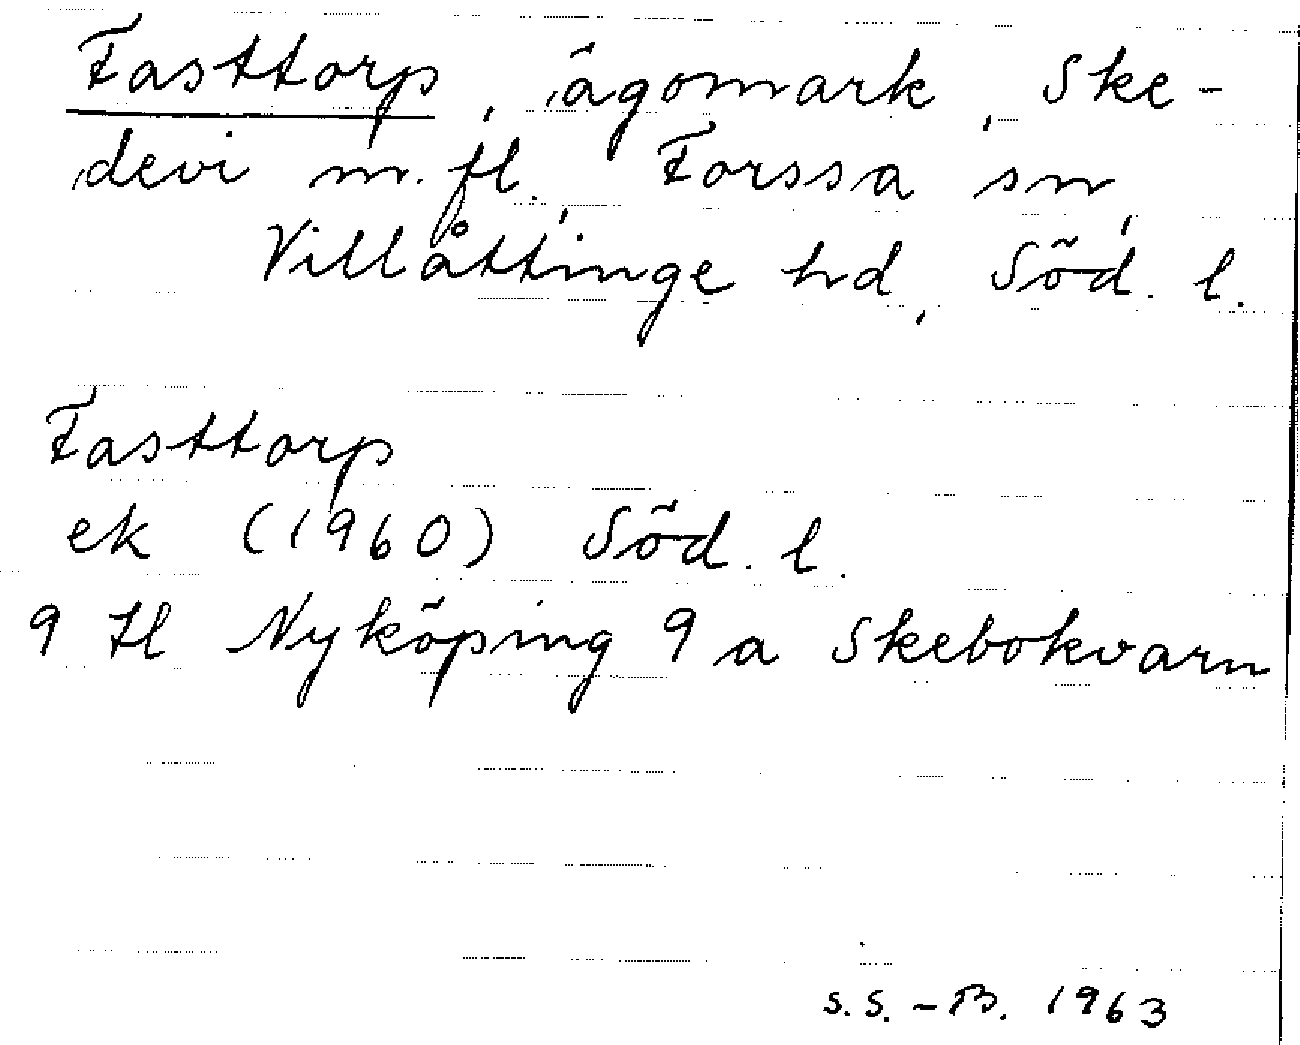 Fasttorp, ägomark, Ske-
devi m. fl., Forssa sn,
Villåttinge hd, Söd. l.
Fasttorp
ek (1960) Söd. l.
9 H Nyköping 9 a Skebokvarn
S.S.-B. 1963